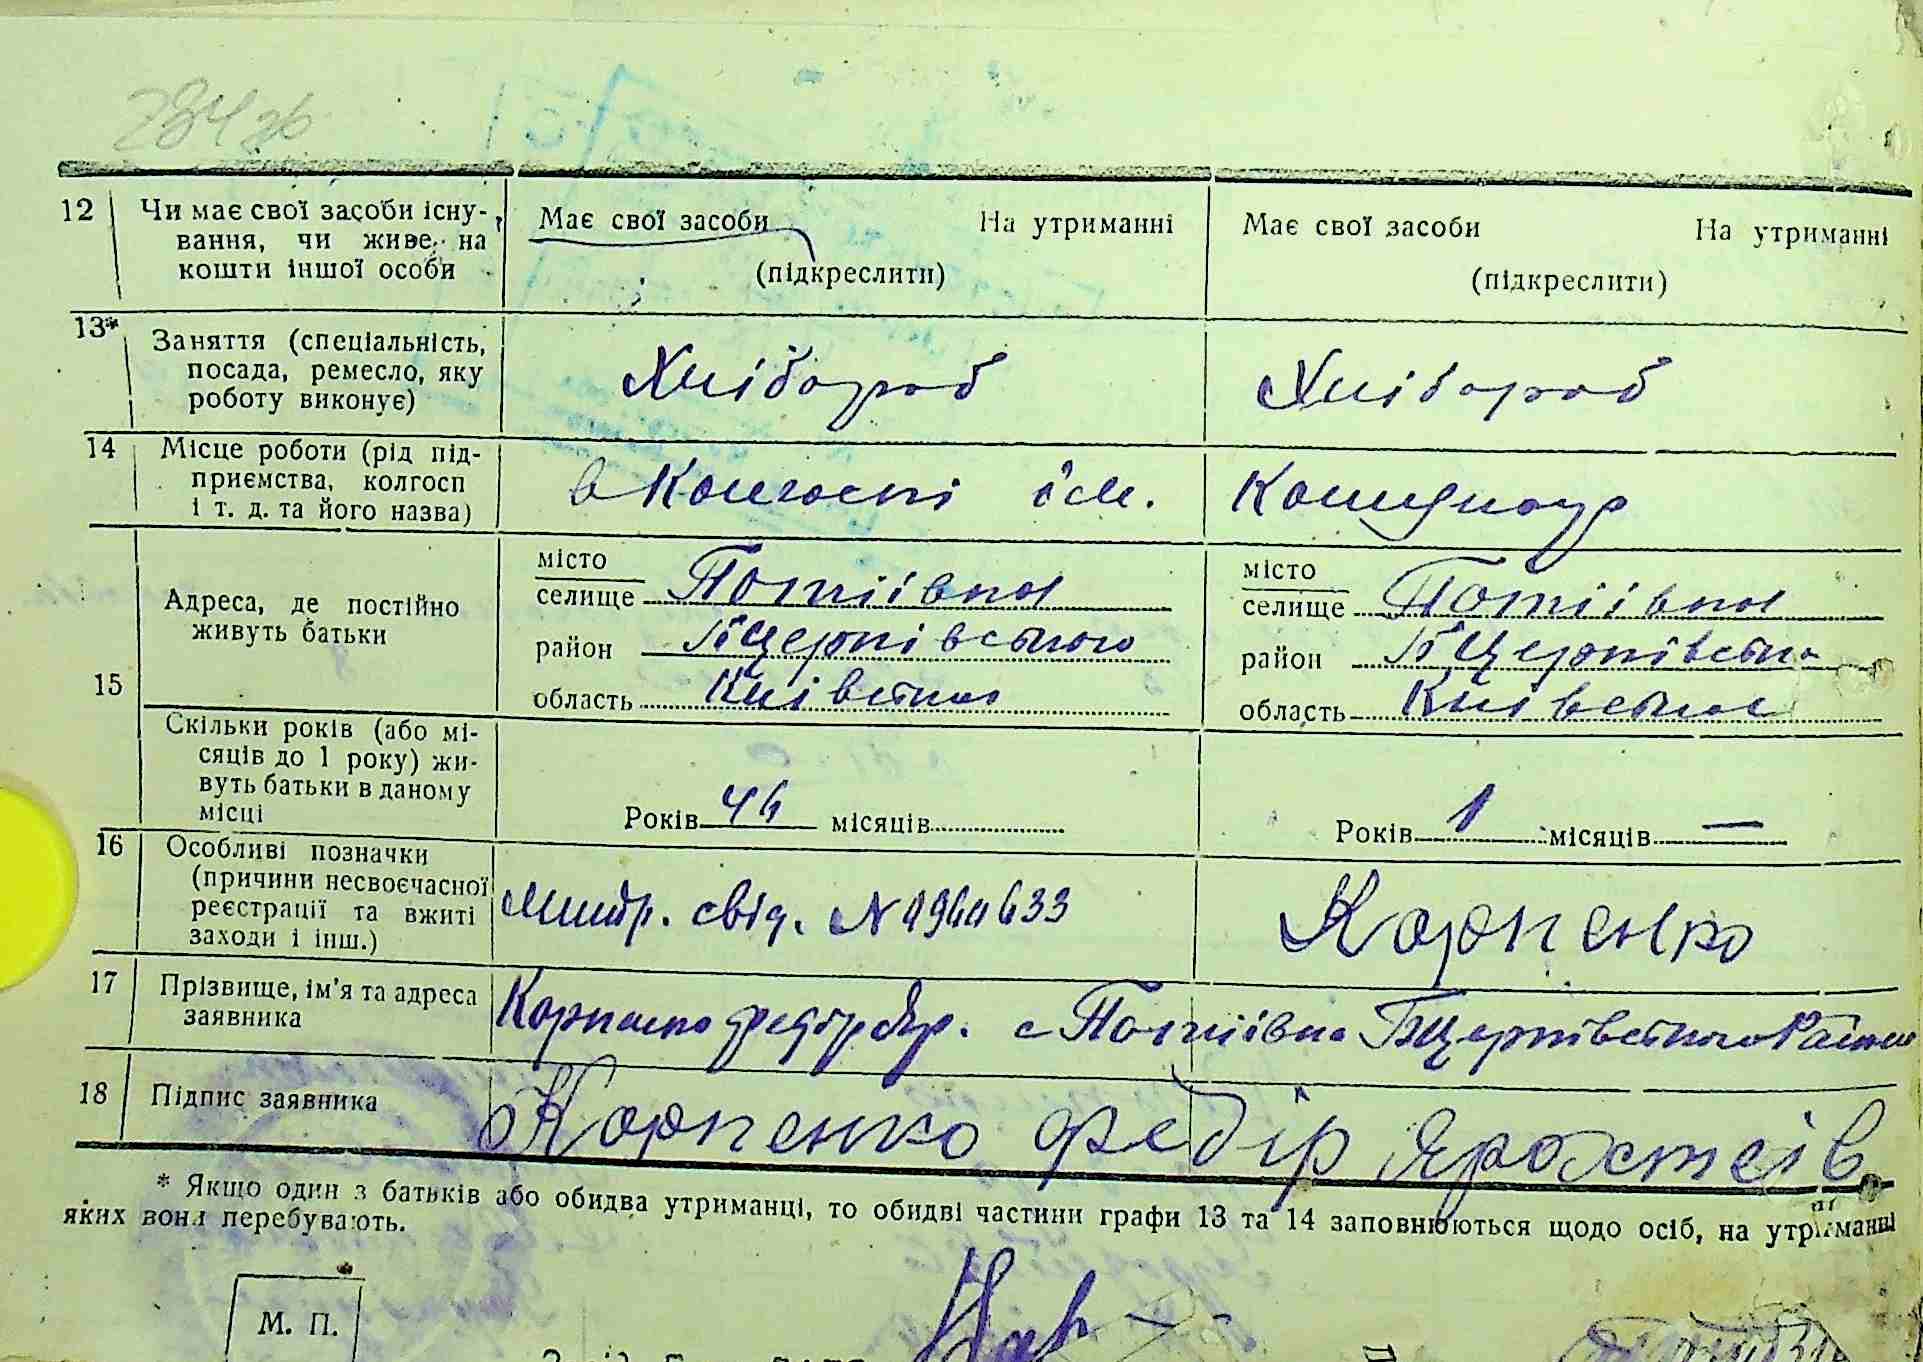 284 зв
12 Чи має свої засоби існу-
вання, чи живе на
кошти іншої особи
Має свої засоби На утриманні
(підкреслити)
Має свої засоби На утриманні
(підкреслити)
13* Заняття (спеціальність,
посада, ремесло, яку
роботу виконує)
Хлібороб
Хлібороб
14 Місце роботи (рід під-
приємства, колгосп
і т. д. та його назва)
в Колгоспі ім.
15 Адреса, де постійно
живуть батьки
місто
селище Потіївка
район БЦерківського
область Київська
місто
селище Потіївка
район БЦерківсько
область Київська
Скільки років (або мі-
сяців до 1 року) жи-
вуть батьки в даному
місці
Років 44 місяців
Років 1 місяців —
16 Особливі позначки
(причини несвоєчасної
реєстрації та вжиті
заходи і інш.)
свід. №
Карпенко
17 Прізвище, ім'я та адреса
заявника
Карпенко Федір Яр. с Потіївка БЦерківського Району
18 Підпис заявника
Карпенко Федір
* Якщо один з батьків або обидва утриманці, то обидві частини графи 13 та 14 заповнюються щодо осіб, на утриманні
яких вони перебувають.
М. П.